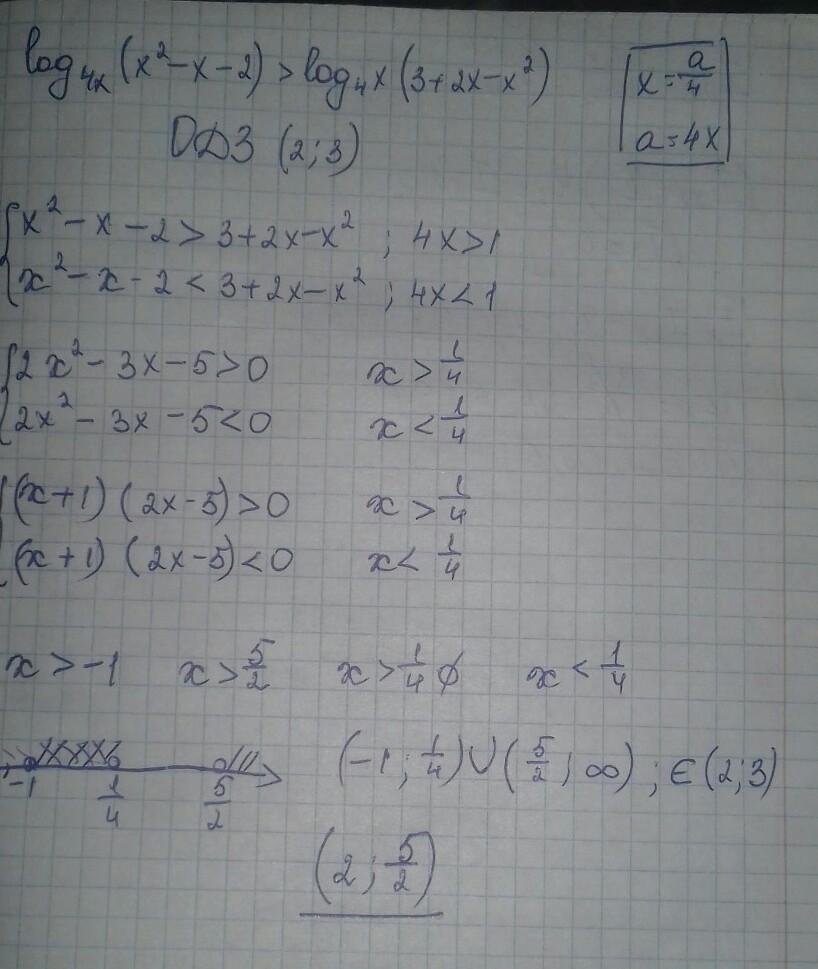 log₄ₓ(x²-x-2)>log₄x(3+2x-x²)
x=a/4
a=4x
ОДЗ (2;3)
{x²-x-2>3+2x-x²; 4x>1
x²-x-2<3+2x-x²; 4x<1
{2x²-3x-5>0 x>1/4
2x²-3x-5<0 x<1/4
{(x+1)(2x-5)>0 x>1/4
(x+1)(2x-5)<0 x<1/4
x>-1 x>5/2 x>1/4 ∅ x<1/4
-1 1/4 5/2
(-1;1/4)∪(5/2;∞); ∈(2;3)
(2;5/2)